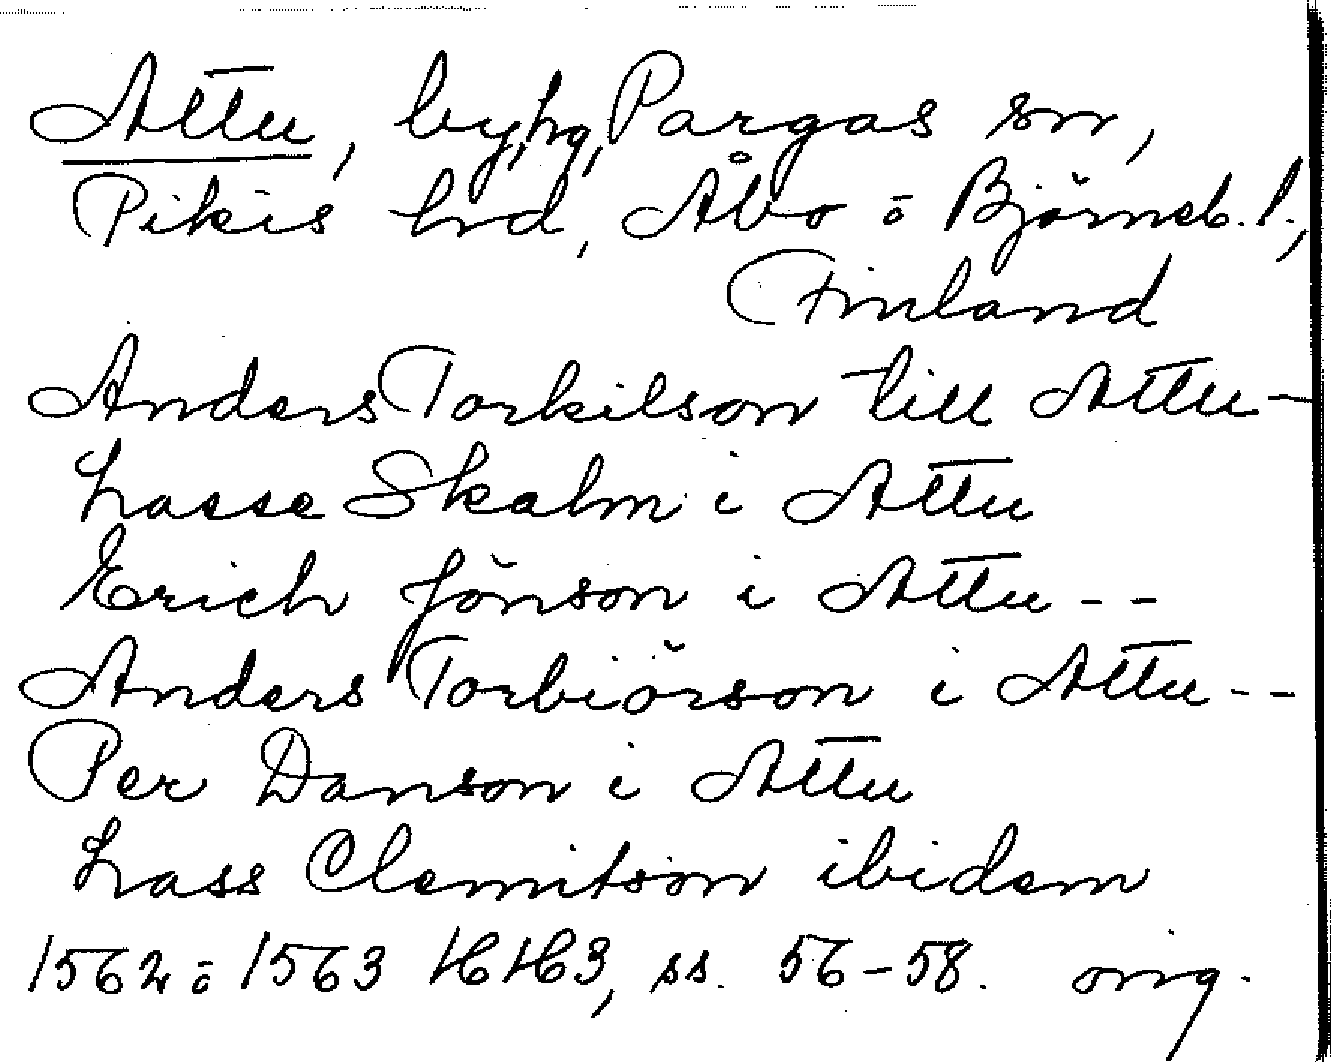 Attu, by, hg, Pargas sn,
Pikis hrd, Åbo o Björneb. l.,
Finland
Anders Torkilson till Attu -
Lasse Skalm i Attu
Erich Jönson i Attu - -
Anders Torbiörson i Attu - -
Per Danson i Attu
Lass Clemitson ibidem
1562 o 1563 HH3, ss. 56-58. orig.